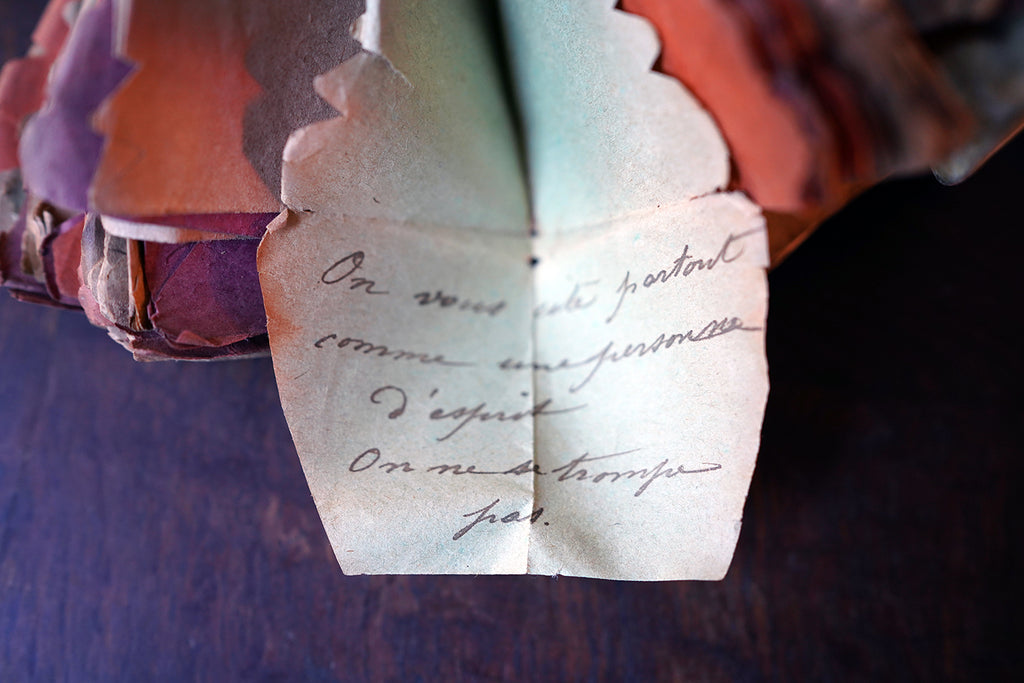 On vous cite partout
comme une personne
d'esprit
On ne se trompe
pas.